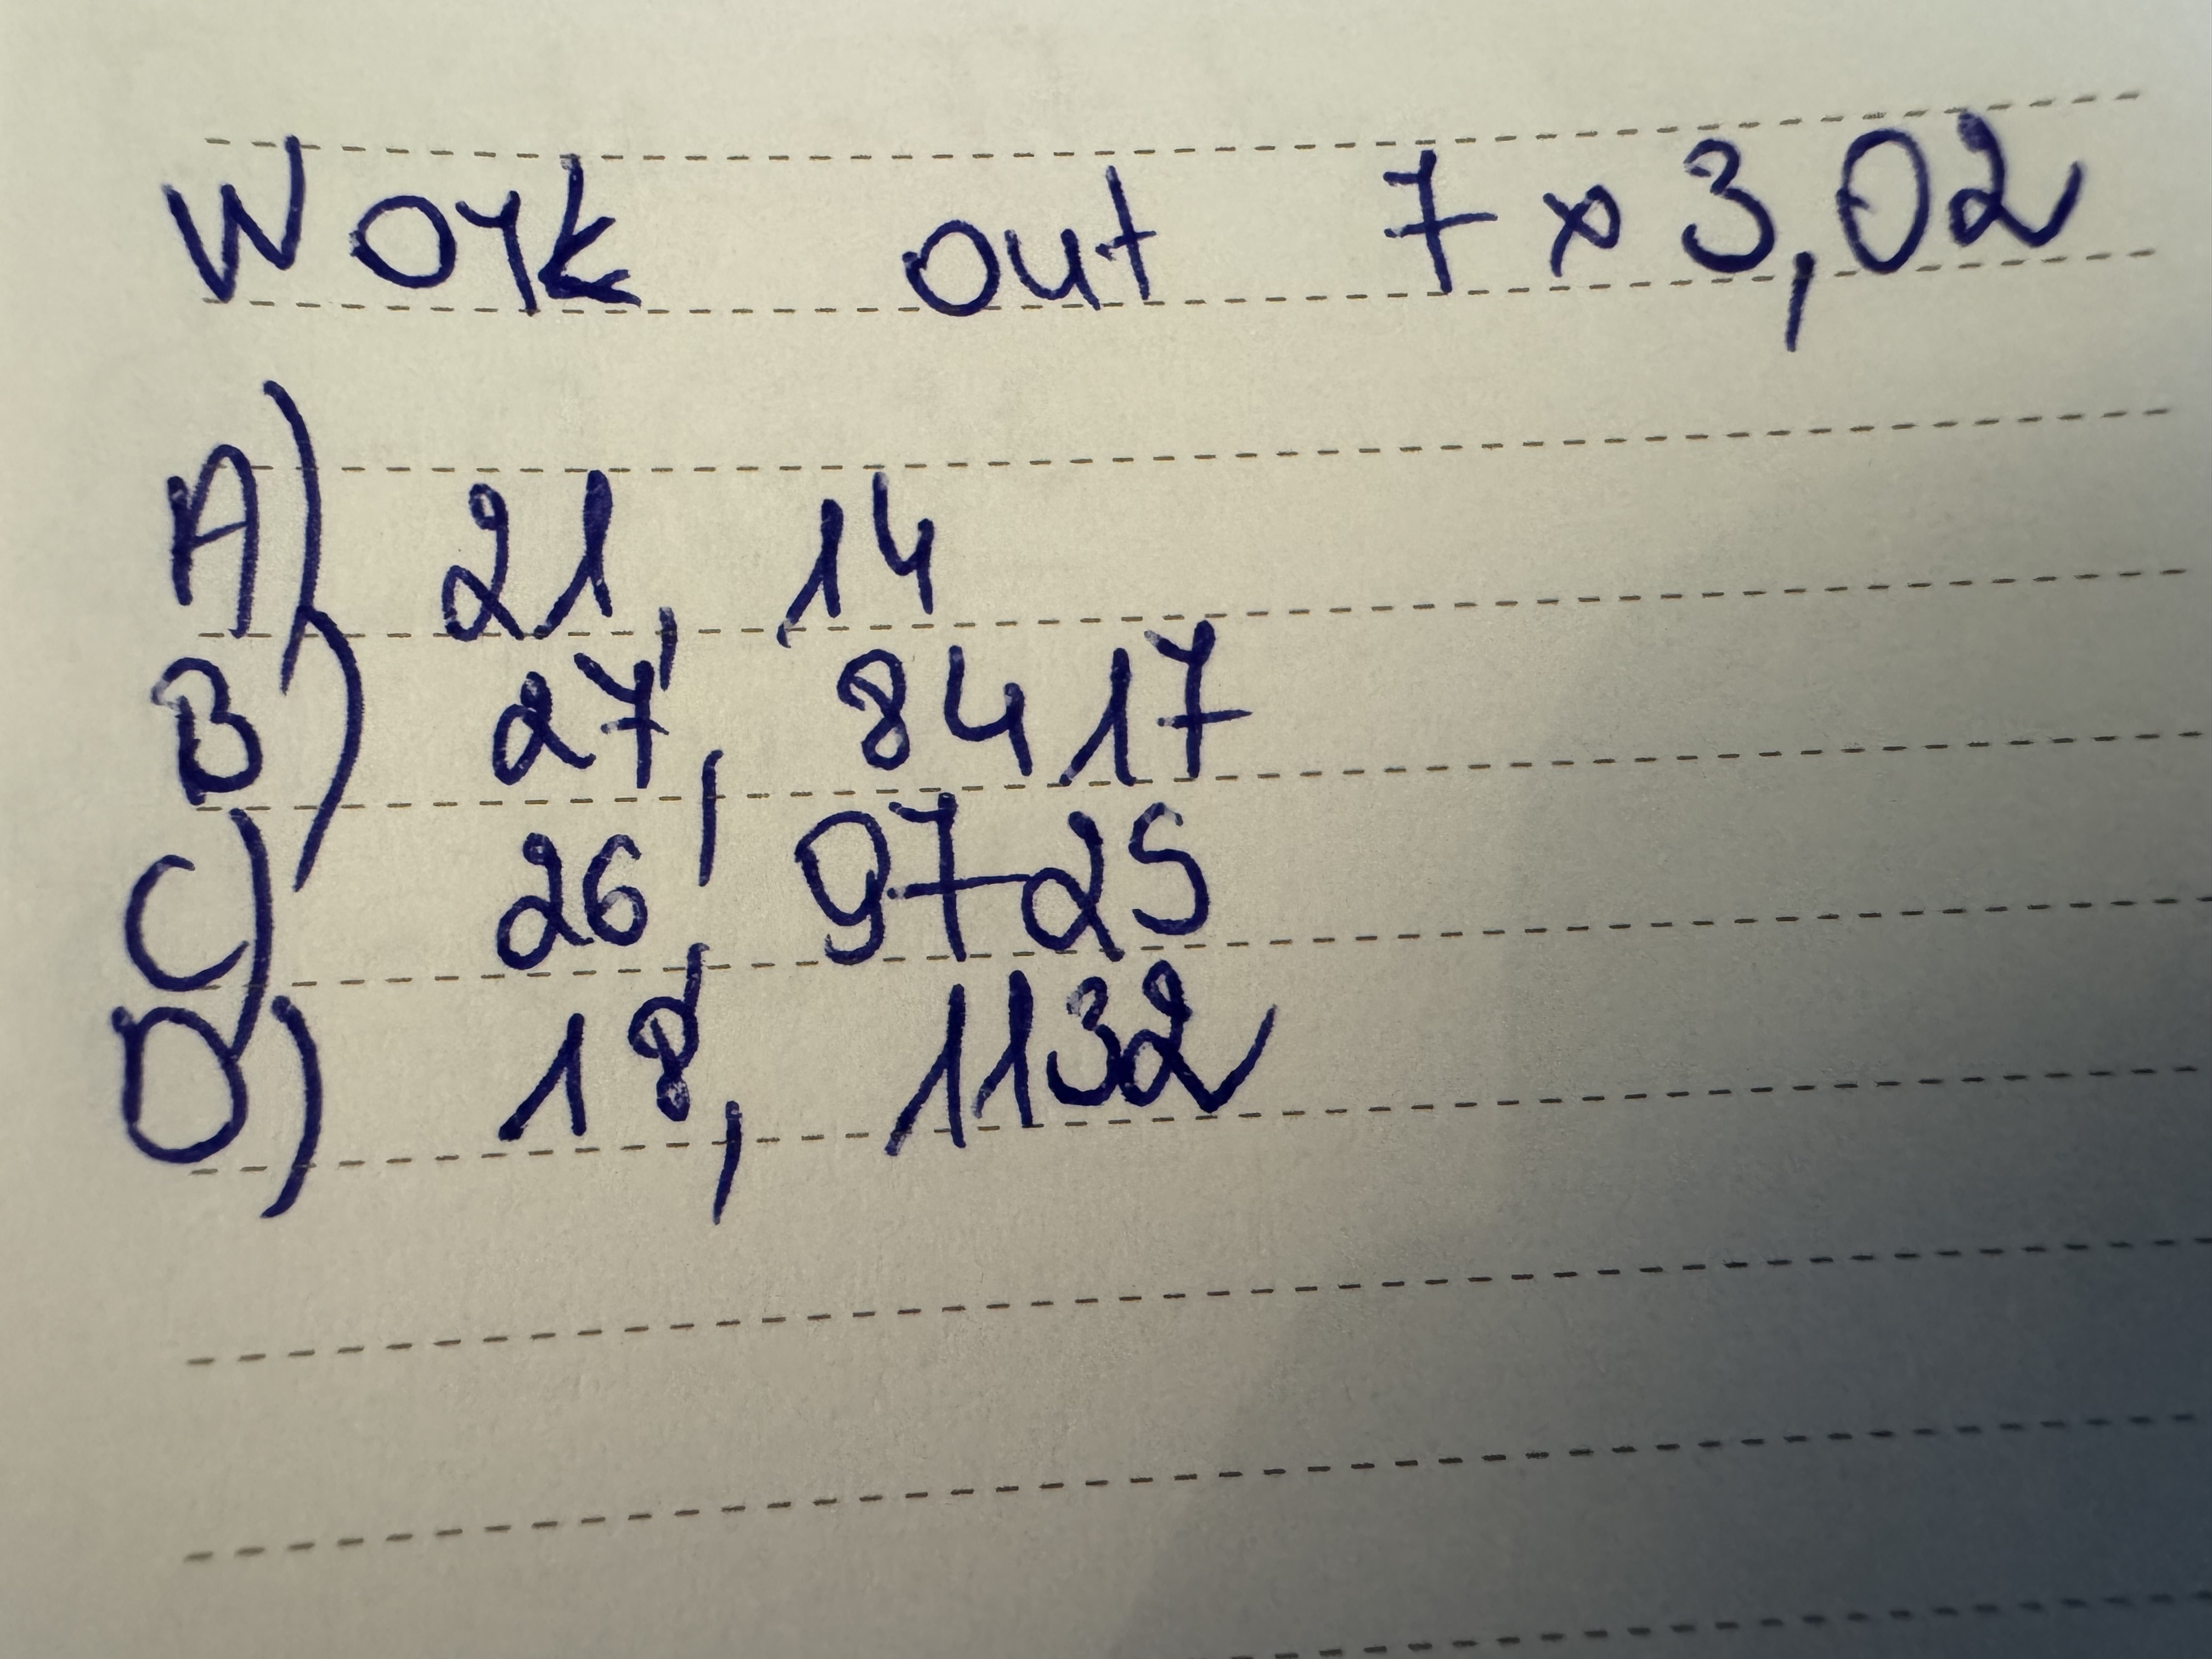 Work out 7 x 3,02
A) 21, 14
B) 27, 8417
C) 26, 9725
D) 18, 1132